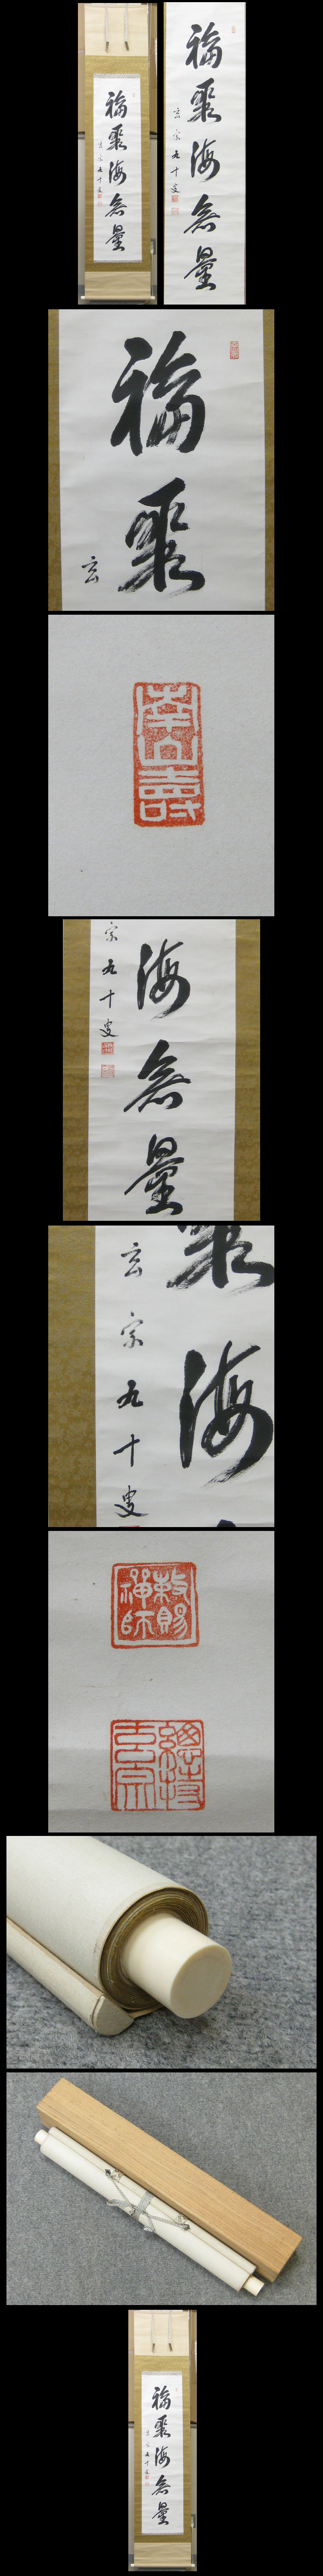 福聚海無量
玄宗九十叟
福聚海無量
玄宗九十叟
福聚
玄
南山壽
海無量
宗九十叟
聚海
玄宗九十叟
敕賜禅師
福聚海無量
玄宗九十叟